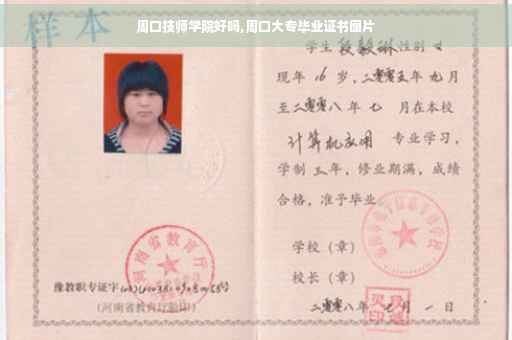 周口技师学院好吗,周口大专毕业证书图片
样本
学生段毅琳性别女
现年16岁，二零零五年九月
至二零零八年七月在本校
计算机应用 专业学习，
学制三年，修业期满，成绩
合格，准予毕业。
学校（章）
校长（章）
二零零八年七月一日
河南省教育厅
豫教职专证字
(河南省教育厅验印)